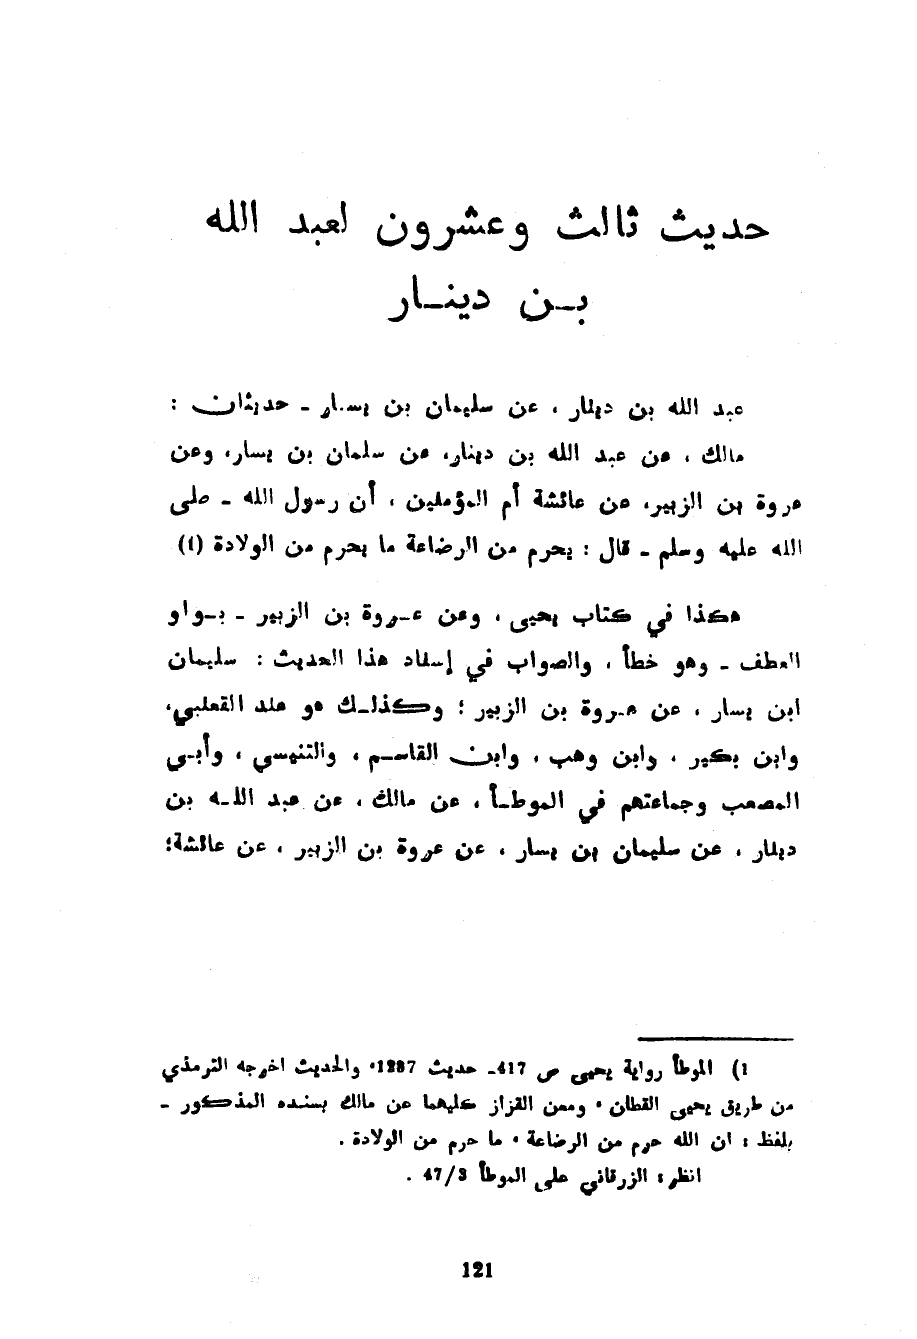 حديث ثالث وعشرون لعبد الله
بـن دينـار
عبد الله بن دينار ، عن سليمان بن يسـار ـ حديثان :
مالك ، عن عبد الله بن دينار، عن سلمان بن يسار، وعن
عروة بن الزبير، عن عائشة أم المؤمنين ، أن رسول الله ـ صلى
الله عليه وسلم ـ قال : يحرم من الرضاعة ما يحرم من الولادة (1)
هكذا في كتاب يحيى ، وعن عـروة بن الزبير ـ بـواو
العطف ـ وهو خطأ ، والصواب في إسناد هذا الحديث : سليمان
ابن يسار ، عن عـروة بن الزبير ؛ وكذلـك هو عند القعنبي،
وابن بكير ، وابن وهب ، وابن القاسـم ، والتنيسي ، وأبـي
المصعب وجماعتهم في الموطـأ ، عن مالك ، عن عبد اللـه بن
دينار ، عن سليمان بن يسار ، عن عروة بن الزبير ، عن عائشة؛
1) الموطأ رواية يحيى ص 417ـ حديث 1287، والحديث اخرجه الترمذي
من طريق يحيى القطان ، ومعن القزاز كليهما عن مالك بسنده المذكور ـ
بلفظ : ان الله حرم من الرضاعة ، ما حرم من الولادة .
انظر : الزرقاني على الموطأ 47/3 .
121